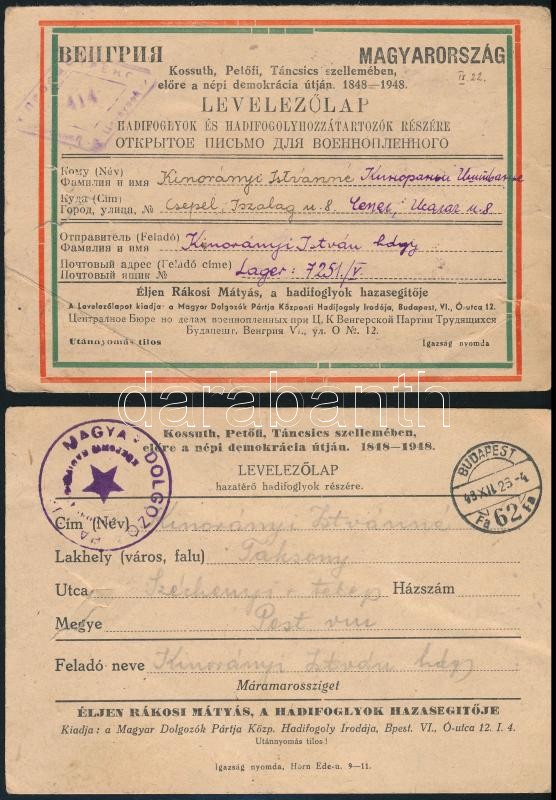 ВЕНГРИЯ MAGYARORSZÁG
Kossuth, Petőfi, Táncsics szellemében,
előre a népi demokrácia útján. 1848—1948.
414
LEVELEZŐLAP
HADIFOGLYOK ÉS HADIFOGOLYHOZZÁTARTOZÓK RÉSZÉRE
ОТКРЫТОЕ ПИСЬМО ДЛЯ ВОЕННОПЛЕННОГО
Кому (Név) Kinorányi Istvánné
Фамилия и имя
Куда (Cím) Csepel, Iszalag u. 8.
Город, улица, №
Отправитель (Feladó) Kinorányi István hdgy
Фамилия и имя
Почтовый адрес (Feladó címe) Lager: 7251/V.
Почтовый ящик №
Éljen Rákosi Mátyás, a hadifoglyok hazasegítője
A Levelezőlapot kiadja a Magyar Dolgozók Pártja Központi Hadifogoly Irodája, Budapest, VI., Ó-utca 12.
Централное Бюре но делам военнопленных при Ц. К Венгерской Партии Трудящихся
Будапешт, Венгрия VI., ул. О № 12.
Utánnyomás tilos Igazság nyomda
darabanth
Kossuth, Petőfi, Táncsics szellemében,
előre a népi demokrácia útján. 1848—1948.
MAGYAR DOLGOZÓ
LEVELEZŐLAP
hazatérő hadifoglyok részére.
BUDAPEST
62
Cím (Név) Kinorányi Istvánné
Lakhely (város, falu) Taksony
Utca Széchenyi Házszám
Megye Pest vm
Feladó neve Kinorányi István hdgy
Máramarossziget
ÉLJEN RÁKOSI MÁTYÁS, A HADIFOGLYOK HAZASEGITŐJE
Kiadja: a Magyar Dolgozók Pártja Közp. Hadifogoly Irodája, Bpest. VI., Ó-utca 12. I. 4.
Utánnyomás tilos!
Igazság nyomda, Horn Ede-u. 9—11.